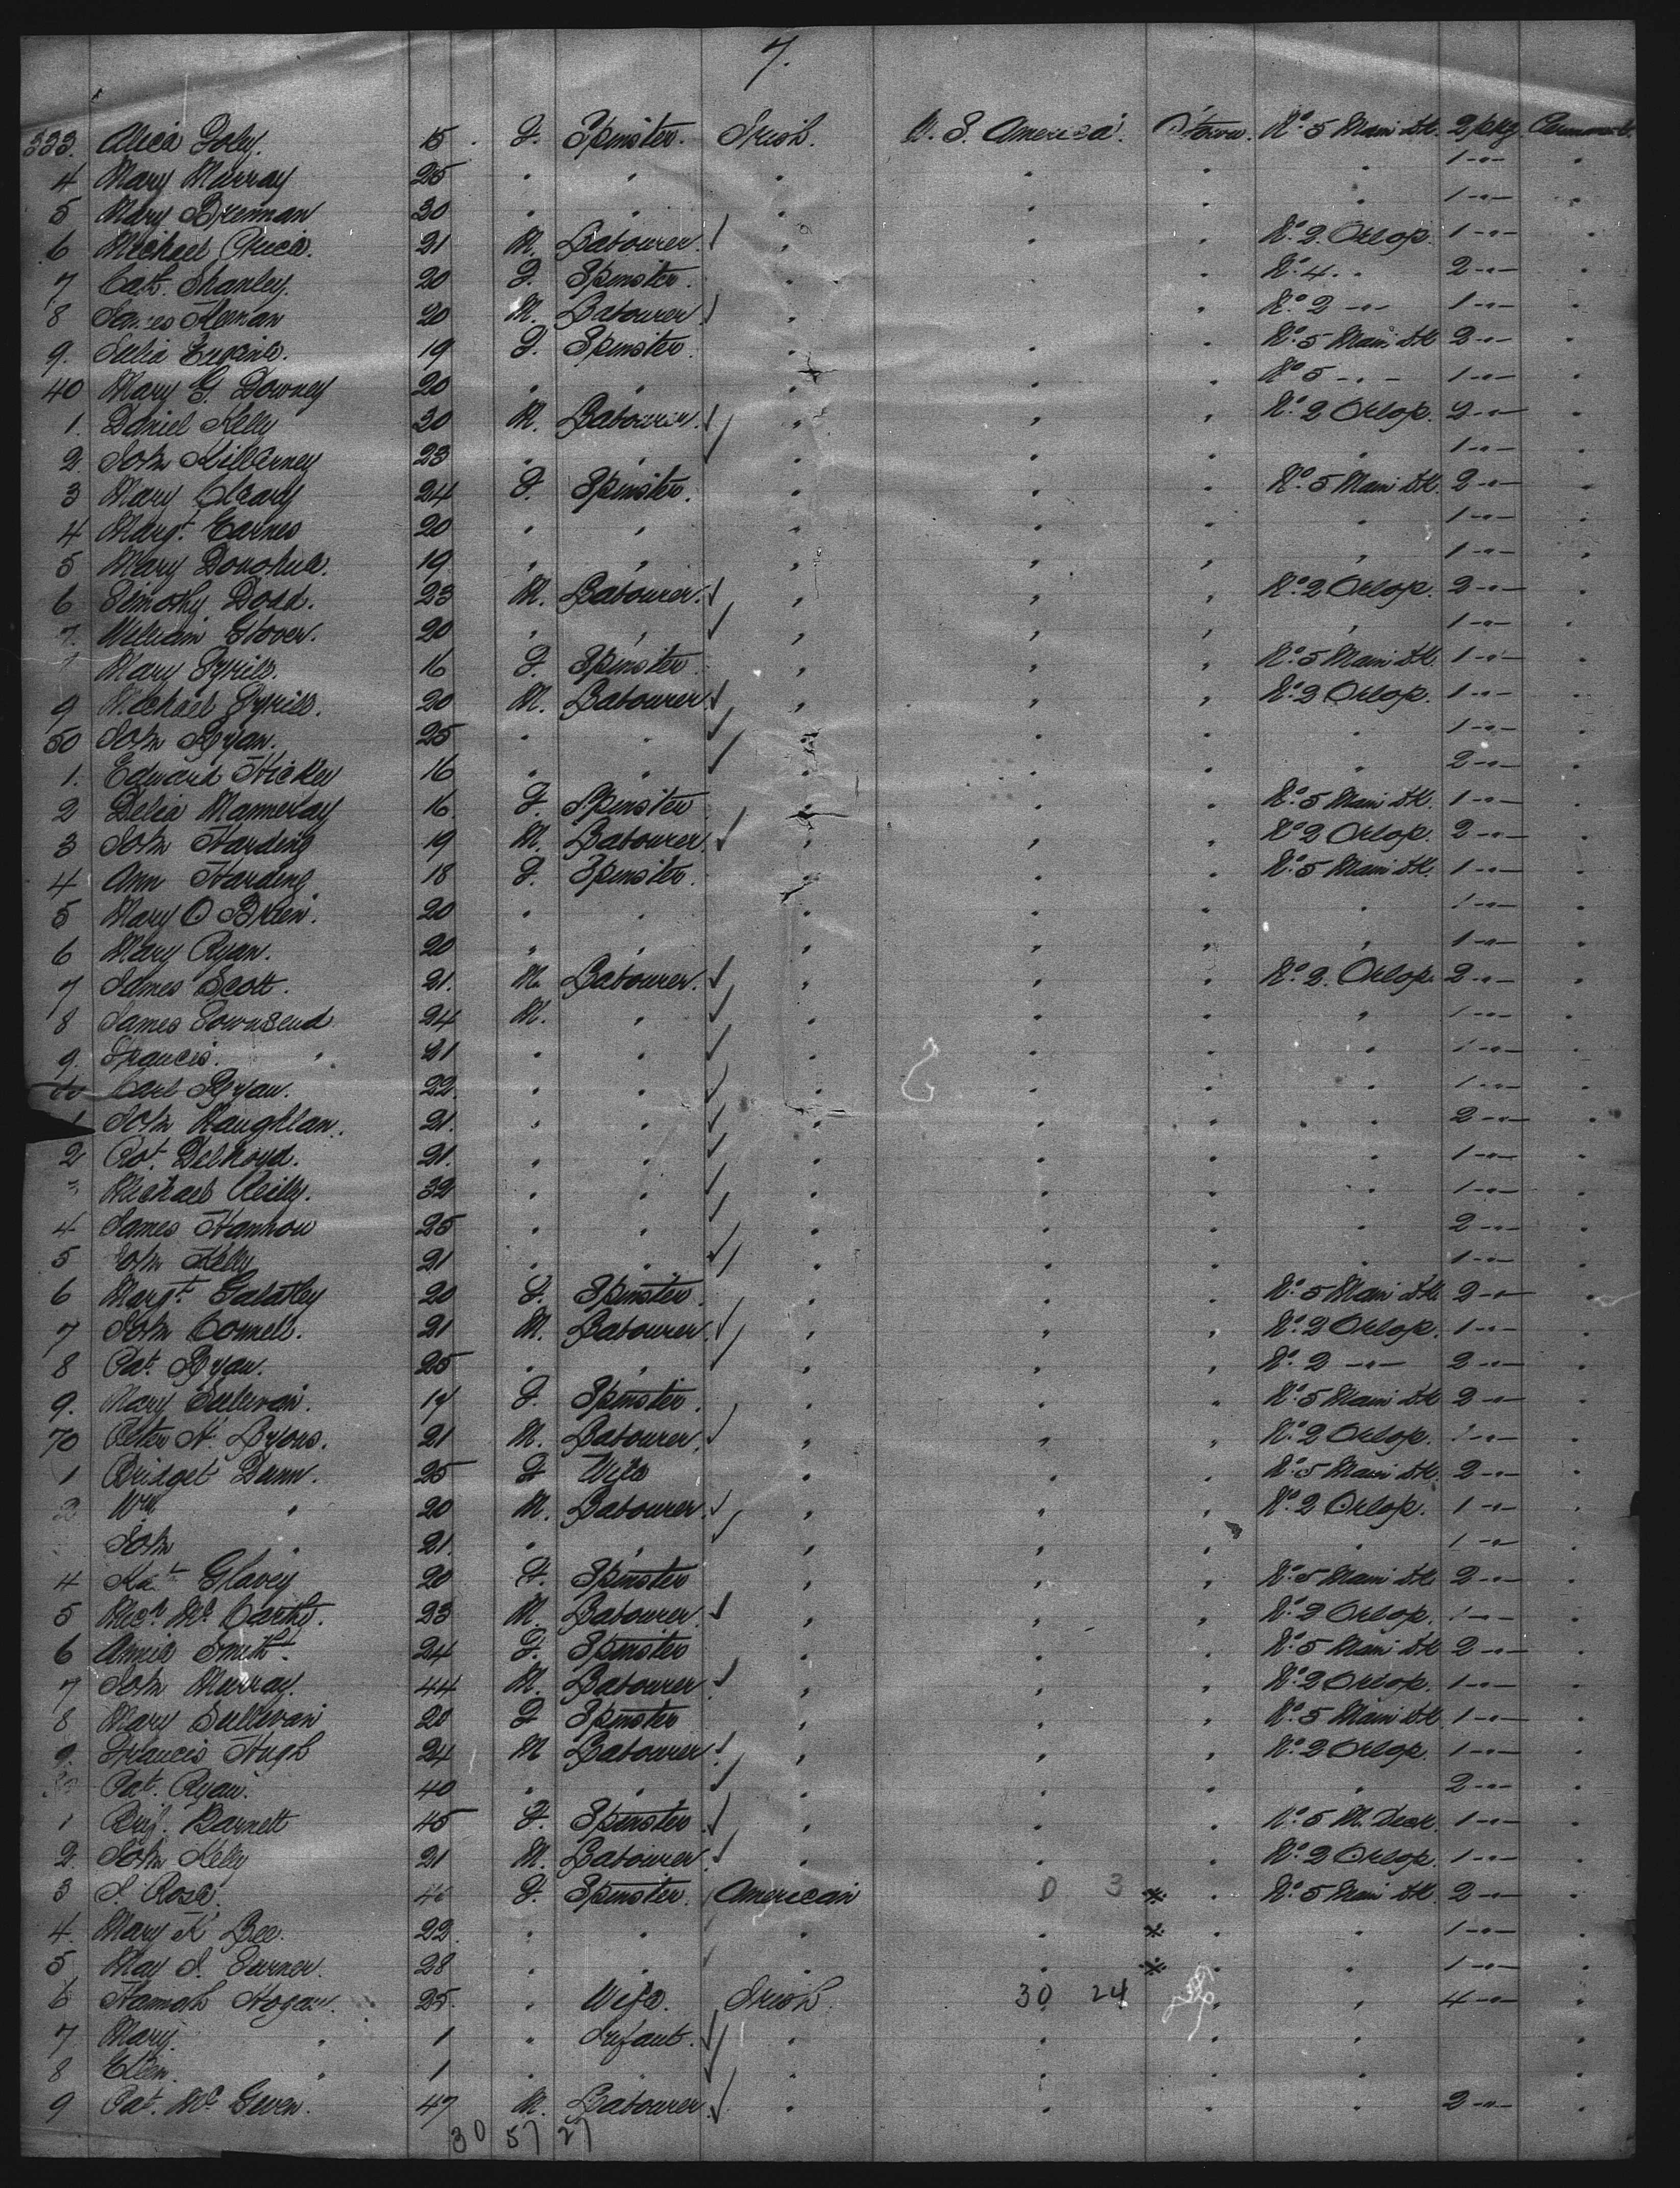 7.
333. Alice Foley. 15 F. Spinster. Irish. U. S. America. Qtown. No. 5 Main Dk. 2 pkg
4 Mary Murray 25 " " " " " " 1 -"-
5 Mary Brennan 30 " " " " " 1 -"-
6 Michael Price. 21 M. Labourer. ✓ " " " No. 2. Orlop. 1 -"-
7 Cath. Shanley. 20 F. Spinster. " " " No. 4. " 2 -"-
8 James 20 M. Labourer ✓ " " No. 2 -"- 1 -"-
9. 19 F. Spinster. " " " No. 5 Main Dk 2 -"-
40 Mary G. Downey 20 " " " " " No. 5 -"- 1 -"-
1. Daniel Kelly 20 M. Labourer. ✓ " " " No. 2 Orlop. 2 -"-
2. John Killerney 23 " " ✓ " " " " 1 -"-
3 Mary Cleary 24 F. Spinster. " " " No. 5 Main Dk. 2 -"-
4 Margt. 20 " " " " " " 1 -"-
5 Mary Donohue. 19 " " " " " " 1 -"-
6 Timothy Dodd. 23 M. Labourer. ✓ " " " No. 2 Orlop. 2 -"-
7. William Glover. 20 " " ✓ " " " " 1 -"-
Mary 16 F. Spinster " " " No. 5 Main Dk. 1 -"-
9 Michael 20 M. Labourer ✓ " " " No. 2 Orlop. 1 -"-
50 John Ryan. 25 " " ✓ " " " " 1 -"-
1. Edward Hickey 16 " " ✓ " " " " 2 -"-
2 Delia 16 F. Spinster " " " No. 5 Main Dk. 1 -"-
3 John Harding 19 M. Labourer. ✓ " " " No. 2 Orlop. 2 -"-
4 Ann Harding 18 F. Spinster. " " " No. 5 Main Dk. 1 -"-
5 Mary O Brien. 20 " " " " " " 1 -"-
6 Mary Ryan. 20 " " " " " " 1 -"-
7 James Scott. 21. M. Labourer. ✓ " " " No. 2. Orlop. 2 -"-
8 James Townsend 24 M. " ✓ " " " " 1 -"-
9. Francis. " 21 " " ✓ " " " " 1 -"-
60 Ryan. 22. " " ✓ " " " " 1 -"-
1 John Haughlan. 21. " " ✓ " " " " 2 -"-
2 Pat. 21. " " ✓ " " " " 1 -"-
3 Michael Reilly. 32 " " ✓ " " " " 1 -"-
4 James 25 " " ✓ " " " " 2 -"-
5 John Kelly 21 " " ✓ " " " " 1 -"-
6 Margt. 20 F. Spinster. " " " No. 5 Main Dk. 2 -"-
7 John Connell. 21 M. Labourer. ✓ " " " No. 2 Orlop. 1 -"-
8 Pat. Ryan. 25 " " ✓ " " " No. 2 -"- 2 -"-
9. Mary Sullivan. 17 F. Spinster. " " " No. 5 Main Dk 2 -"-
70 Peter N. Lyons. 21 M. Labourer. ✓ " " " No. 2 Orlop. 1 -"-
1 Bridget Dunn. 25 F Wife " " " No. 5 Main Dk. 2 -"-
2 Wm. " 20 M. Labourer. ✓ " " " No. 2 Orlop. 1 -"-
John " 21. " " ✓ " " " " 1 -"-
4 Kat. Glavey 20 F. Spinster " " " No. 5 Main Dk. 2 -"-
5 Mich. Mc Carthy. 23 M. Labourer. ✓ " " " No. 2 Orlop. 1 -"-
6 Annie Smith. 24 F. Spinster " " " No. 5 Main Dk 2 -"-
7 John Murray. 44 M. Labourer ✓ " " " No. 2 Orlop. 1 -"-
8 Mary Sullivan 20 F Spinster " " " No. 5 Main Dk. 1 -"-
9. Francis Hugh 24 M Labourer ✓ " " " No. 2 Orlop. 1 -"-
80 Pat. Ryan. 40 " " ✓ " " " " 2 -"-
1 Brid. Barnett 45 F. Spinster ✓ " " " No. 5 M. Deck. 1 -"-
2. John Kelly 21 M. Labourer. ✓ " " " No. 2 Orlop. 1 -"-
3 J. Rose. 40 F. Spinster. American 0 3 * " No. 5 Main Dk 2 -"-
4. Mary K. Lee. 22. " " " " * " " 1 -"-
5 May J. Turner. 28 " " " " * " " 1 -"-
6 Hannah Hogan. 25. " Wife. Irish. 30 24 " " 4 -"-
7 Mary. " 1 " Infant. ✓ " " " "
8 Ellen. " 1 " " ✓ " " " "
9 Pat. Mc Gwen. 47 M. Labourer ✓ " " " " 2 -"-
30 57 27